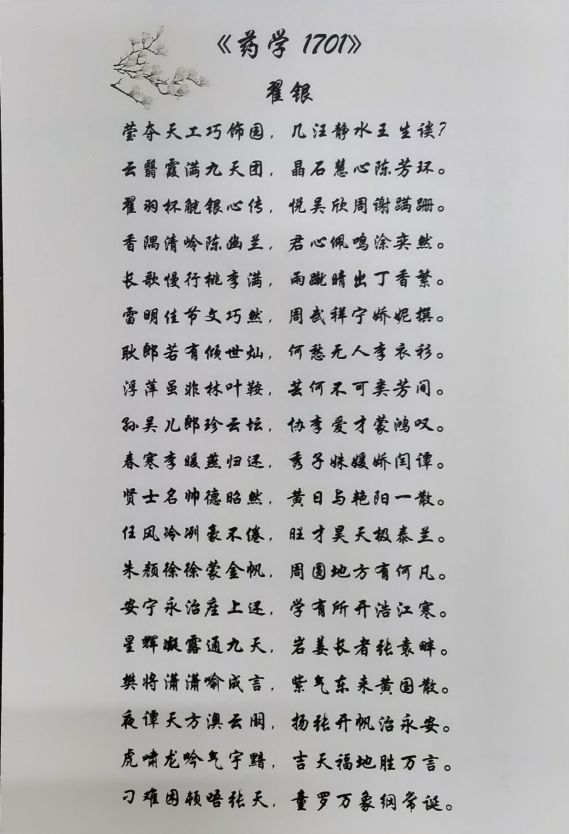 《药学 1701》
翟银
莹夺天工巧饰园，几汪静水王生谈？
云翳霞满九天团，晶石慧心陈芳环。
翟羽杯觥银心传，悦吴欣周谢蹒跚。
香隅清岭陈幽兰，君心佩鸣涂奕然。
长歌慢行桃李满，雨蹴晴出丁香繁。
雷明佳节文巧然，周武祥宁娇妮撰。
耿郎若有倾世灿，何愁无人李衣衫。
浮萍虽非林叶鞍，芸何不可类芳间。
孙吴儿郎珍云坛，协李爱才蒙鸿叹。
春寒李暖燕归还，秀子姝媛娇闰谭。
贤士名帅德昭然，黄日与艳阳一散。
任风冷冽豪不倦，旺才昊天极泰兰。
朱颜徐徐蒙金帆，周圆地方有何凡。
安宁永治座上还，学有所开浩江寒。
星辉凝露通九天，岩姜长者张袁畔。
樊将潇潇喻成言，紫气东来黄国散。
夜谭天方澳云阁，扬张开帆治永安。
虎啸龙吟气宇黯，吉天福地胜万言。
刁难困顿唔张天，童罗万象纲常诞。